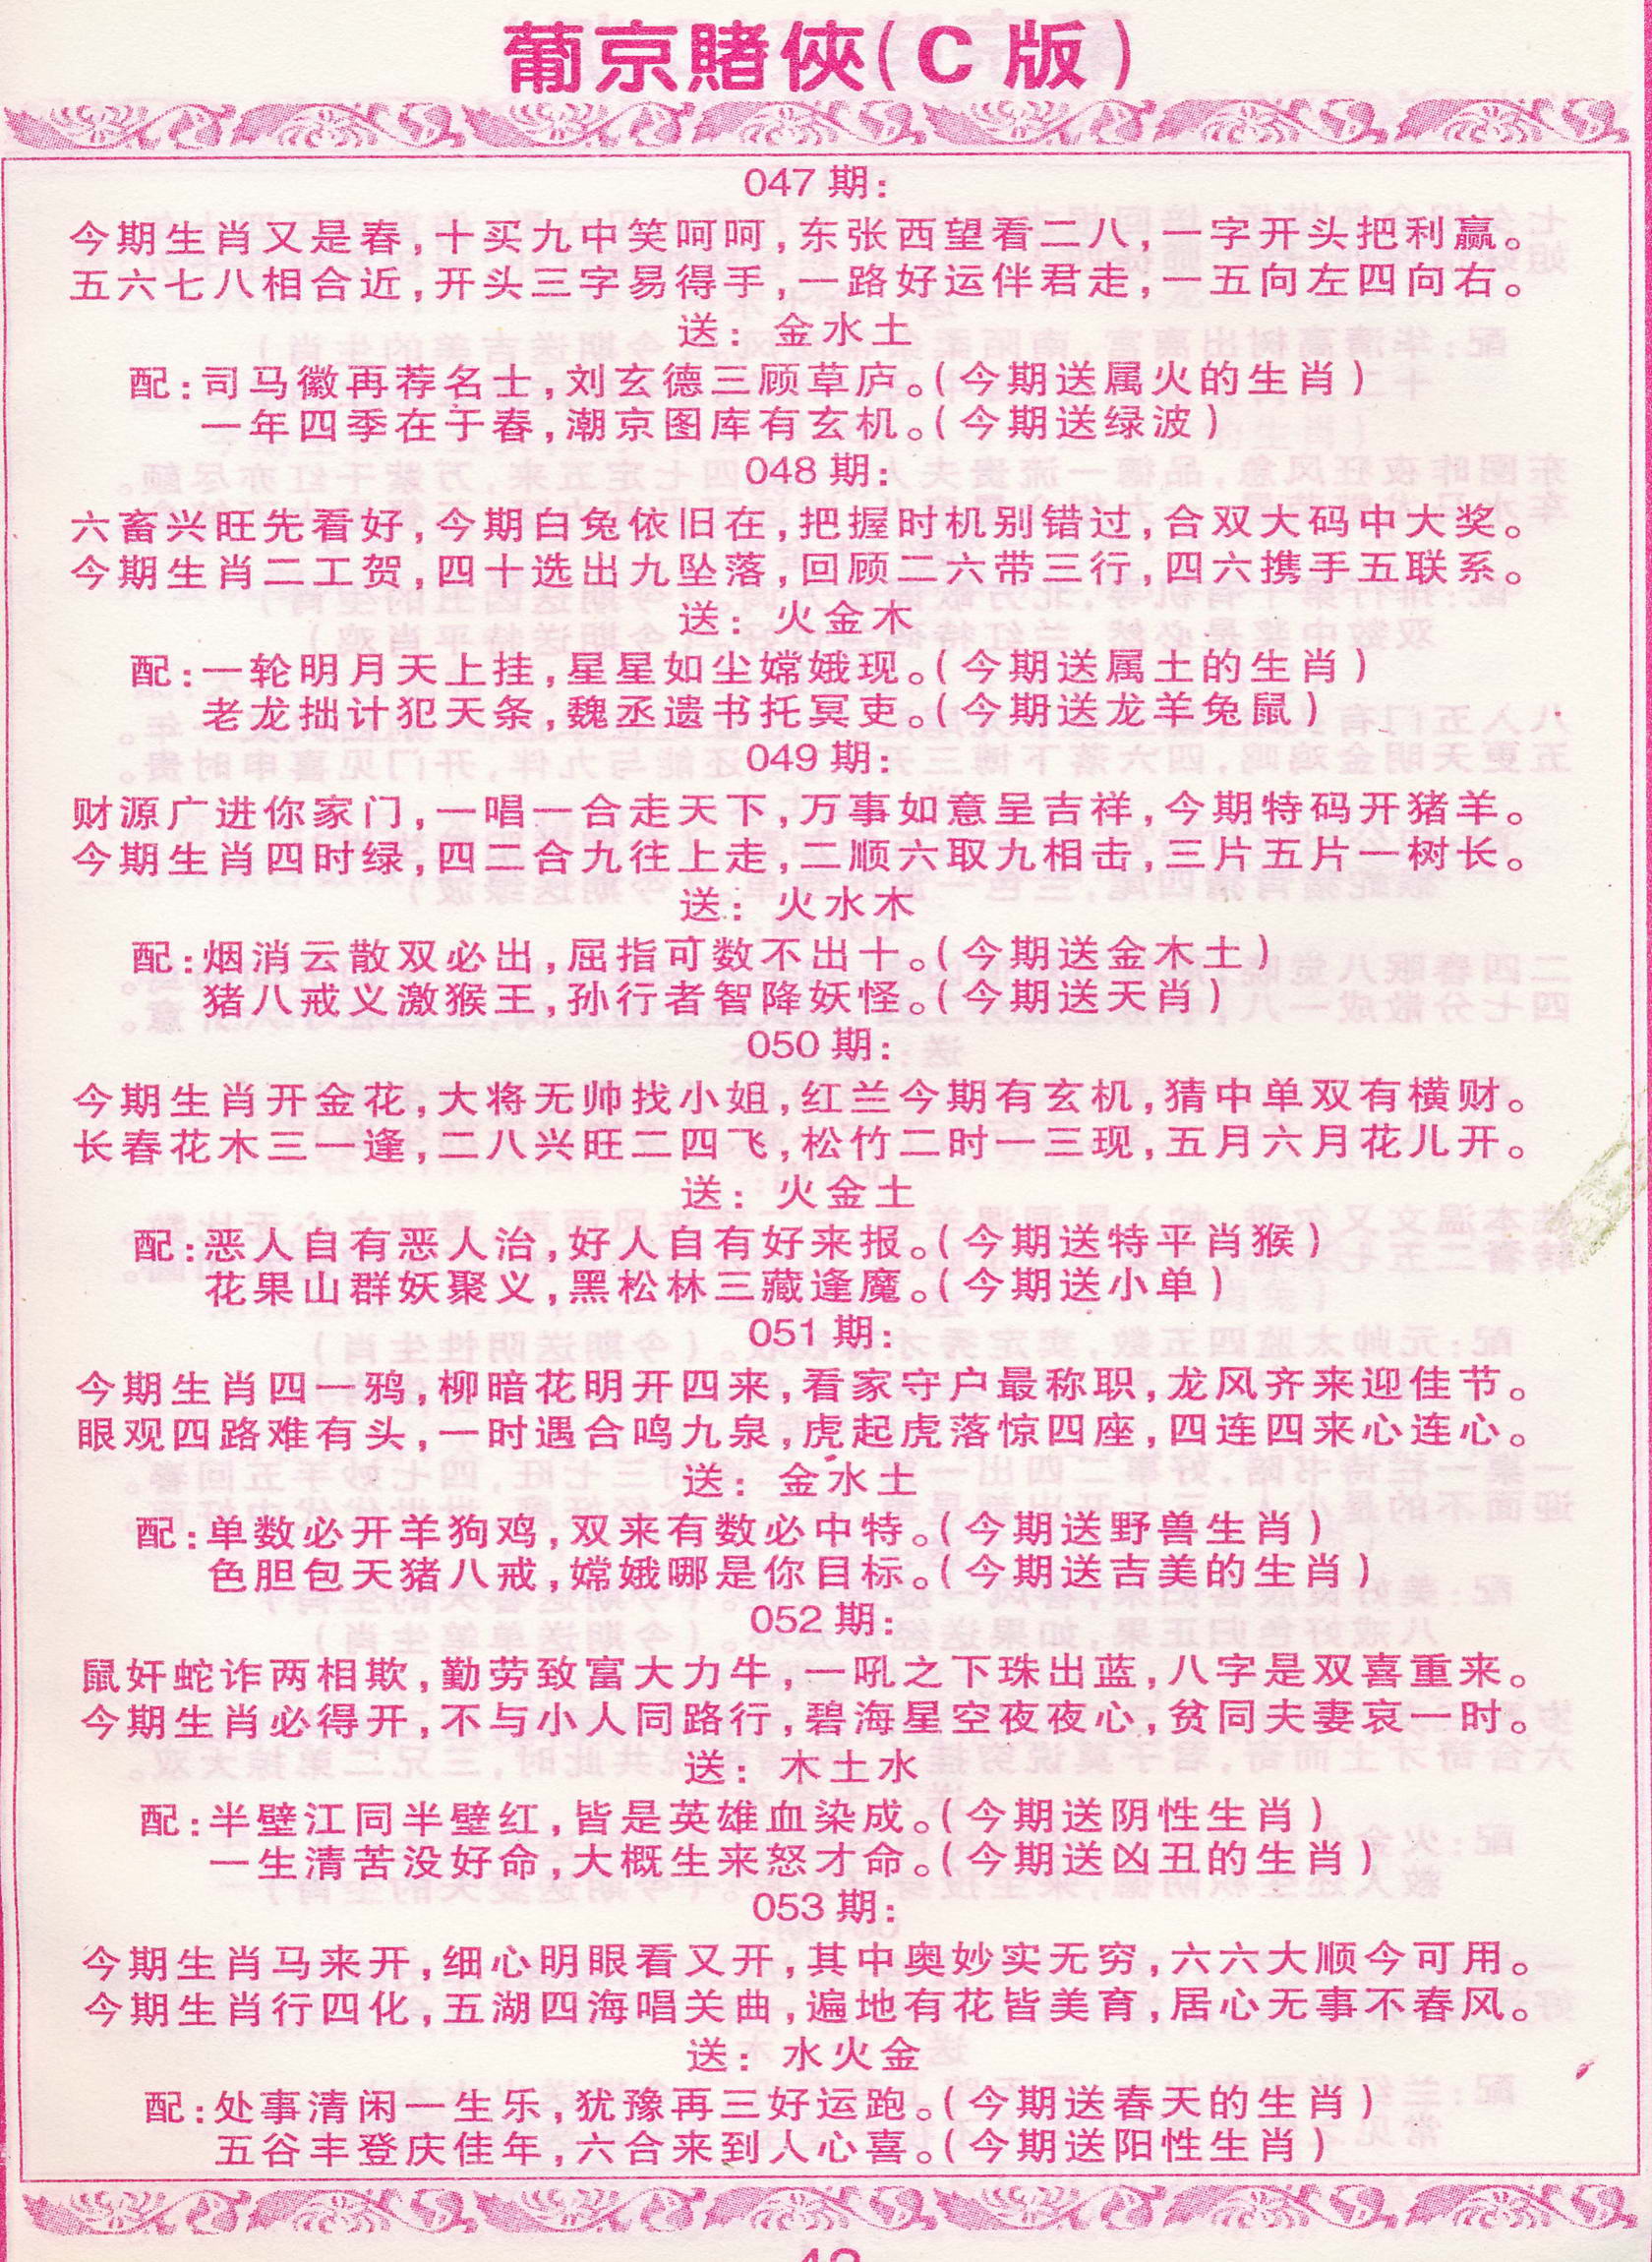 葡京賭俠(C版)
047期:
今期生肖又是春,十买九中笑呵呵,东张西望看二八,一字开头把利赢。
五六七八相合近,开头三字易得手,一路好运伴君走,一五向左四向右。
送: 金水土
配:司马徽再荐名士,刘玄德三顾草庐。(今期送属火的生肖)
一年四季在于春,潮京图库有玄机。(今期送绿波)
048期:
六畜兴旺先看好,今期白兔依旧在,把握时机别错过,合双大码中大奖。
今期生肖二工贺,四十选出九坠落,回顾二六带三行,四六携手五联系。
送: 火金木
配:一轮明月天上挂,星星如尘嫦娥现。(今期送属土的生肖)
老龙拙计犯天条,魏丞遗书托冥吏。(今期送龙羊兔鼠)
049期:
财源广进你家门,一唱一合走天下,万事如意呈吉祥,今期特码开猪羊。
今期生肖四时绿,四二合九往上走,二顺六取九相击,三片五片一树长。
送: 火水木
配:烟消云散双必出,屈指可数不出十。(今期送金木土)
猪八戒义激猴王,孙行者智降妖怪。(今期送天肖)
050期:
今期生肖开金花,大将无帅找小姐,红兰今期有玄机,猜中单双有横财。
长春花木三一逢,二八兴旺二四飞,松竹二时一三现,五月六月花儿开。
送: 火金土
配:恶人自有恶人治,好人自有好来报。(今期送特平肖猴)
花果山群妖聚义,黑松林三藏逢魔。(今期送小单)
051期:
今期生肖四一鸦,柳暗花明开四来,看家守户最称职,龙风齐来迎佳节。
眼观四路难有头,一时遇合鸣九泉,虎起虎落惊四座,四连四来心连心。
送: 金水土
配:单数必开羊狗鸡,双来有数必中特。(今期送野兽生肖)
色胆包天猪八戒,嫦娥哪是你目标。(今期送吉美的生肖)
052期:
鼠奸蛇诈两相欺,勤劳致富大力牛,一吼之下珠出蓝,八字是双喜重来。
今期生肖必得开,不与小人同路行,碧海星空夜夜心,贫同夫妻哀一时。
送: 木土水
配:半壁江同半壁红,皆是英雄血染成。(今期送阴性生肖)
一生清苦没好命,大概生来怒才命。(今期送凶丑的生肖)
053期:
今期生肖马来开,细心明眼看又开,其中奥妙实无穷,六六大顺今可用。
今期生肖行四化,五湖四海唱关曲,遍地有花皆美育,居心无事不春风。
送: 水火金
配:处事清闲一生乐,犹豫再三好运跑。(今期送春天的生肖)
五谷丰登庆佳年,六合来到人心喜。(今期送阳性生肖)